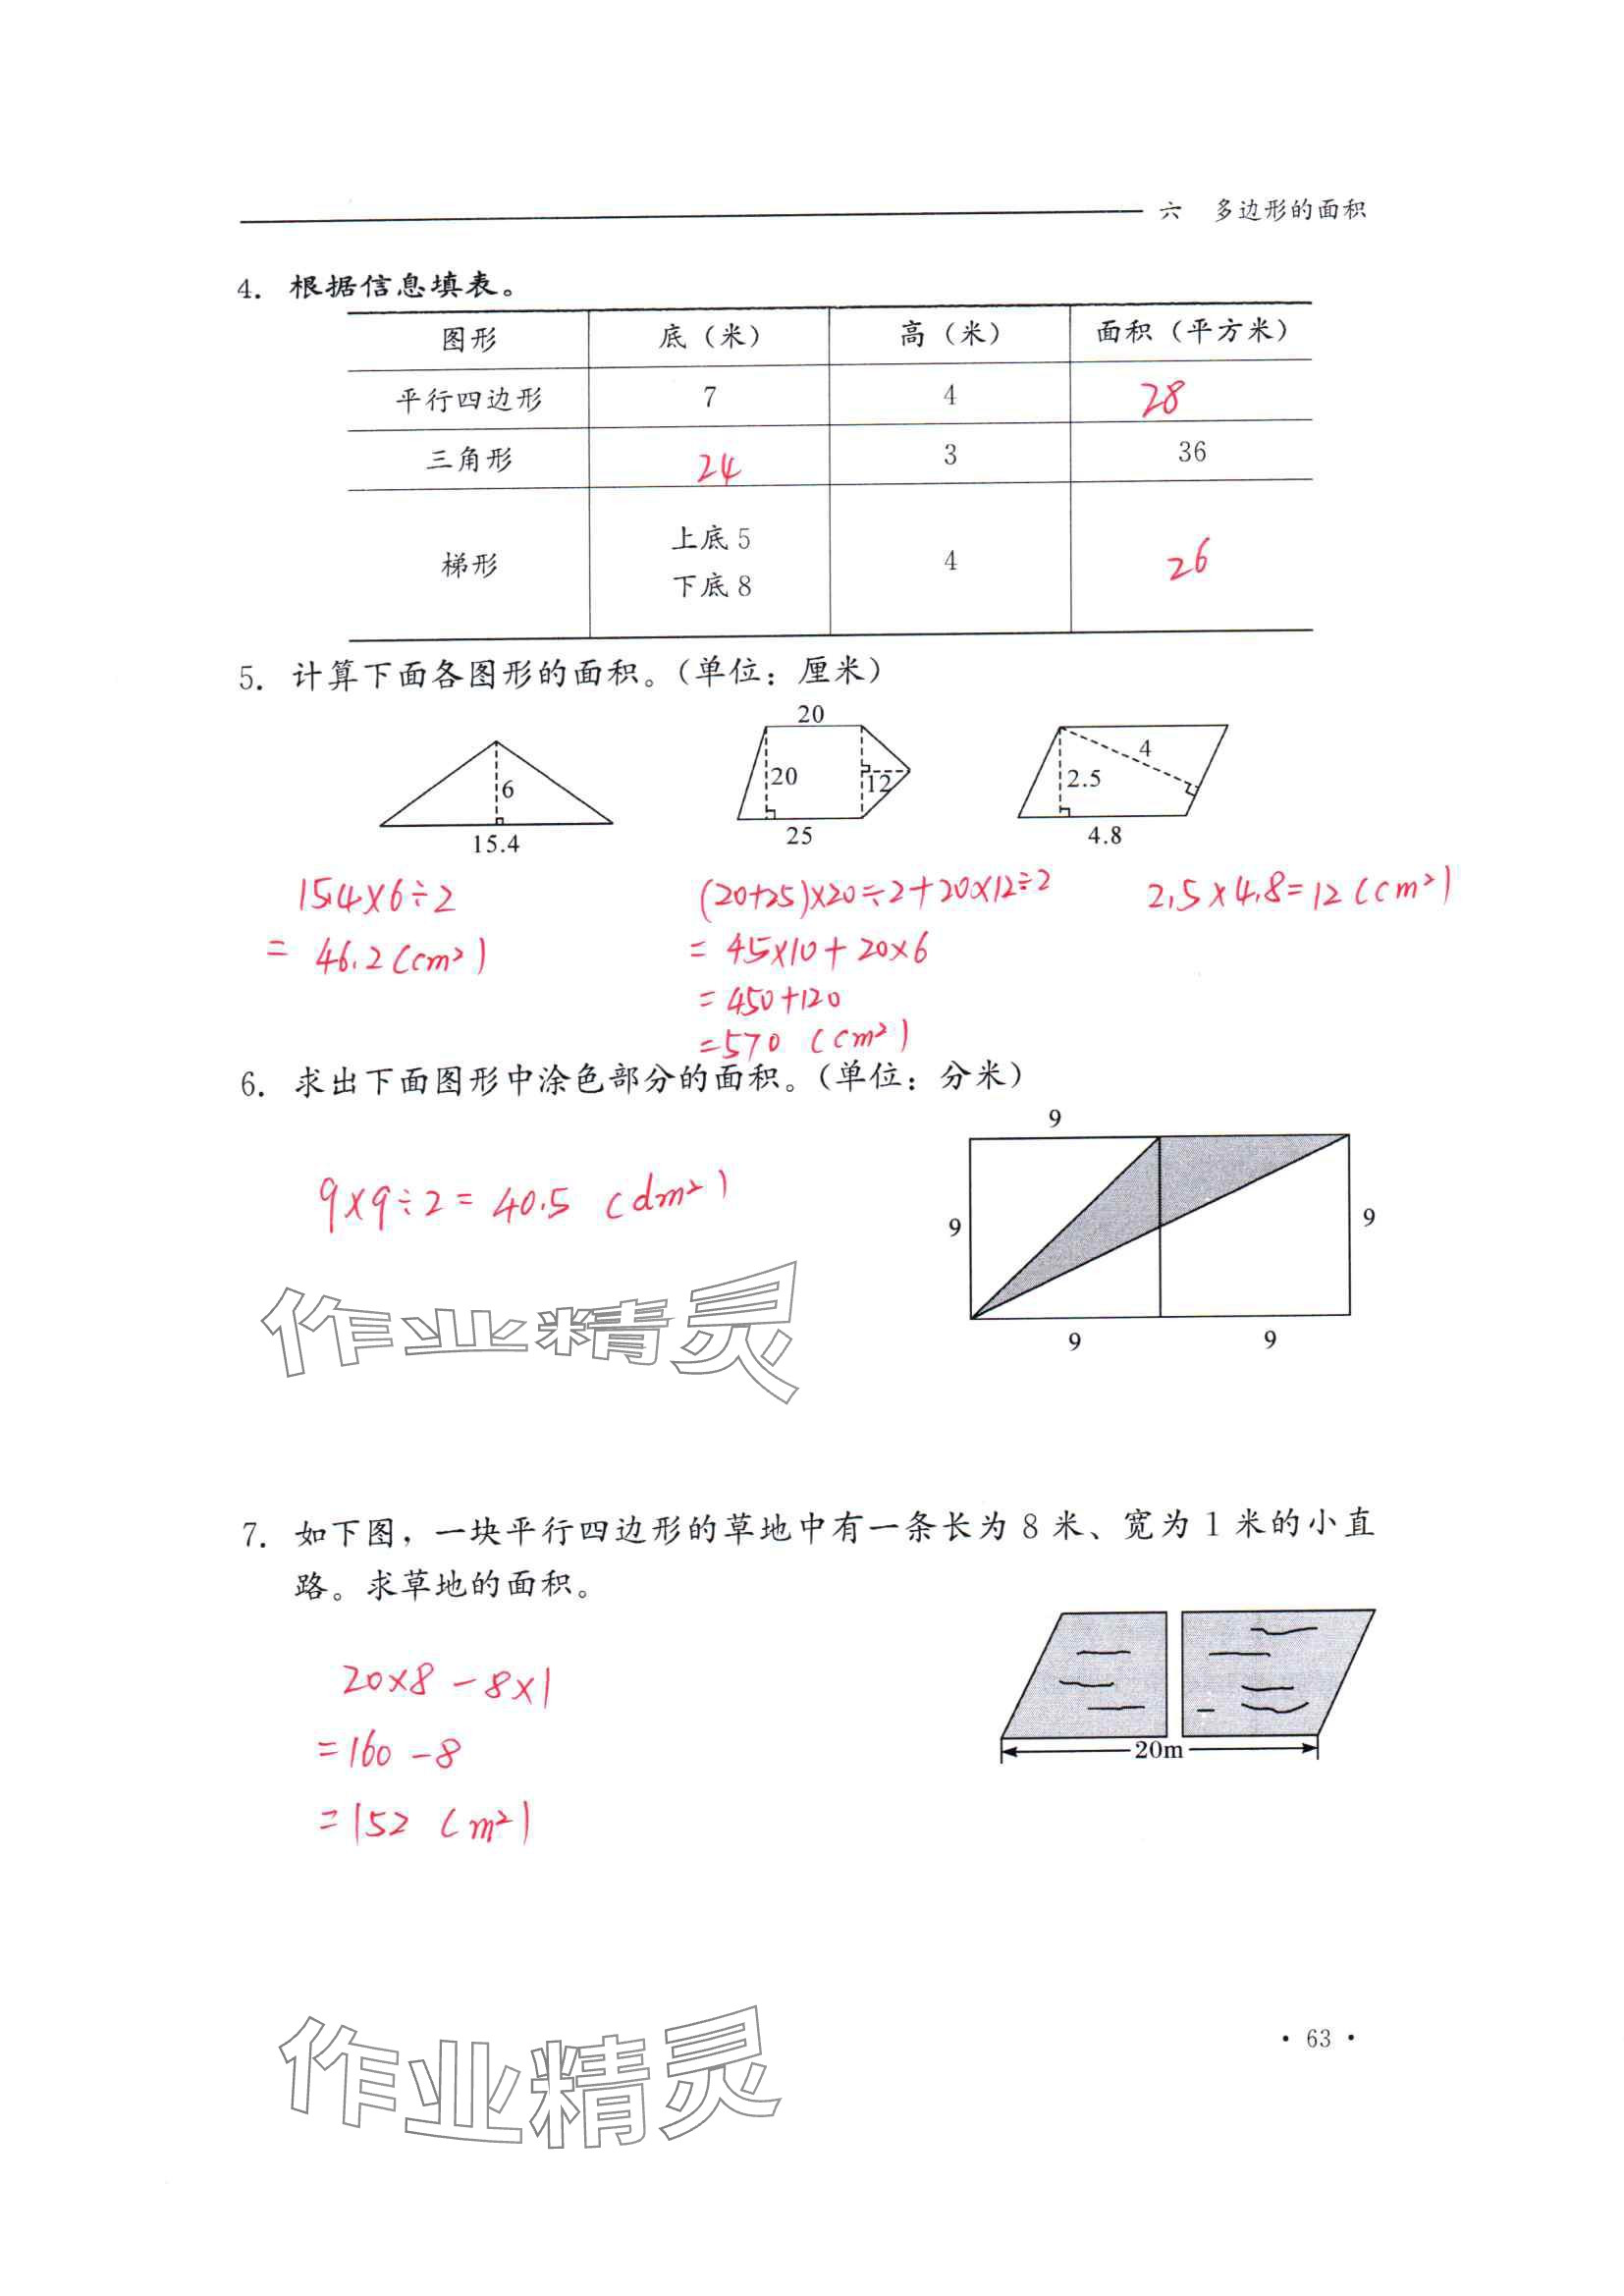 六 多边形的面积
4. 根据信息填表。
图形 底（米） 高（米） 面积（平方米）
平行四边形 7 4 28
三角形 24 3 36
梯形 上底 5 下底 8 4 26
5. 计算下面各图形的面积。（单位：厘米）
6
15.4
20
20
12
25
4
2.5
4.8
15.4×6÷2
= 46.2(cm²)
(20+25)×20÷2+20×12÷2
= 45×10+20×6
= 450+120
=570 (cm²)
2.5×4.8=12(cm²)
6. 求出下面图形中涂色部分的面积。（单位：分米）
9×9÷2=40.5 (dm²)
9
9
9
9
9
作业精灵
7. 如下图，一块平行四边形的草地中有一条长为 8 米、宽为 1 米的小直
路。求草地的面积。
20×8-8×1
=160-8
=152 (m²)
20m
作业精灵
· 63 ·